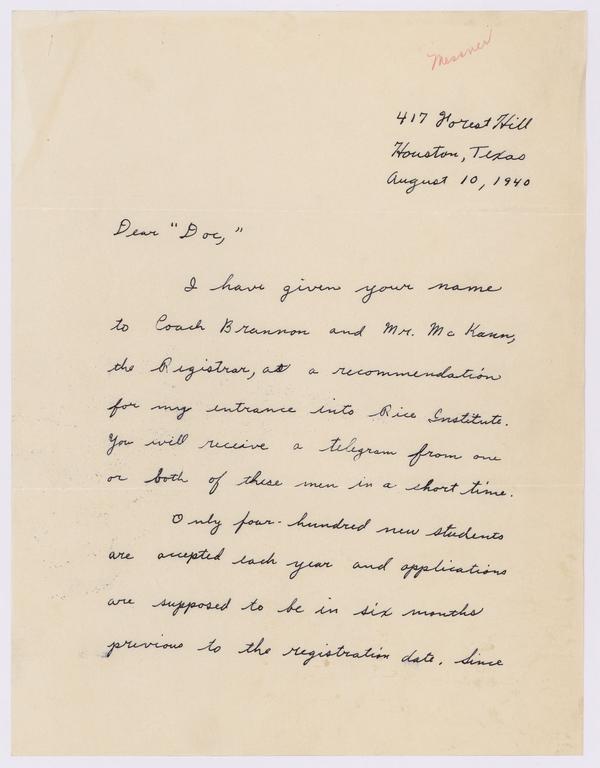 Messner
417 Forest Hill
Houston, Texas
August 10, 1940
Dear "Doc,"
I have given your name
to Coach Brannon and Mr. McKann,
the Registrar, as a recommendation
for my entrance into Rice Institute.
You will receive a telegram from one
or both of these men in a short time.
Only four-hundred new students
are accepted each year and applications
are supposed to be in six months
previous to the registration date. Since